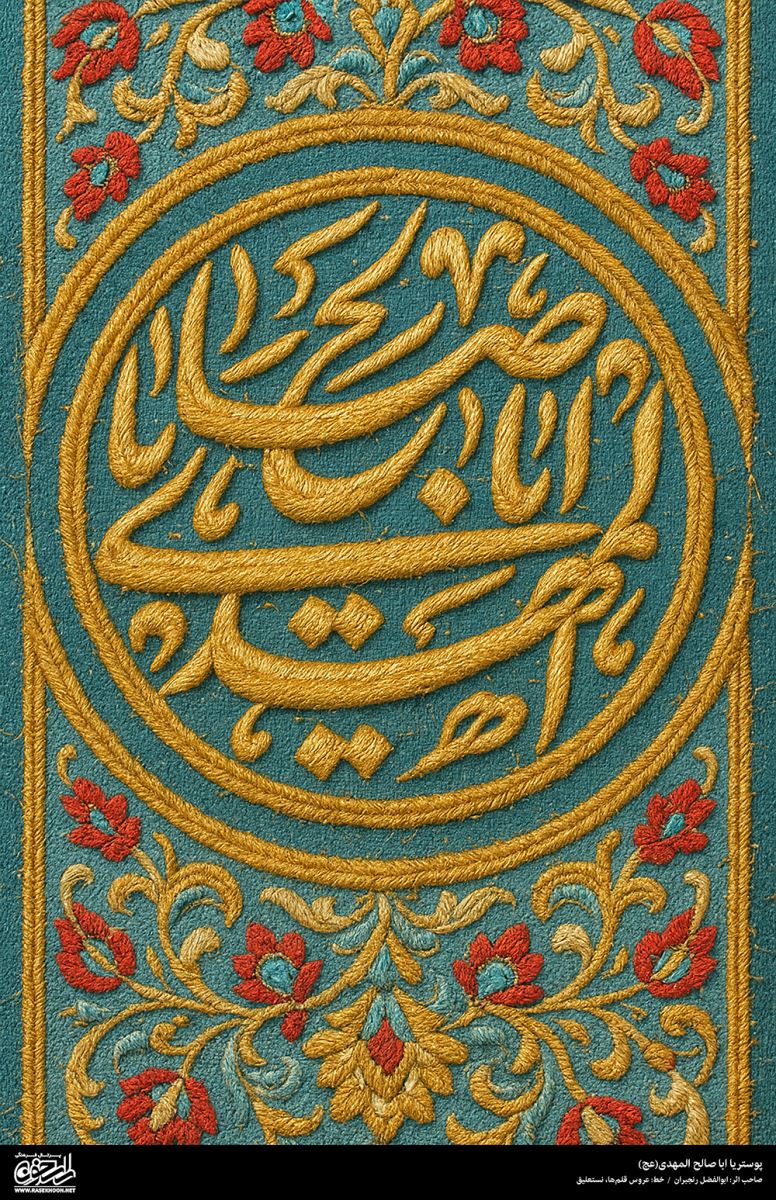 یا اباصالح المهدی
پوستر یا ابا صالح المهدی(عج)
صاحب اثر: ابوالفضل رنجبران / خط: عروس قلم‌ها، نستعلیق
پرتال فرهنگی
راسخون
WWW.RASEKHOON.NET